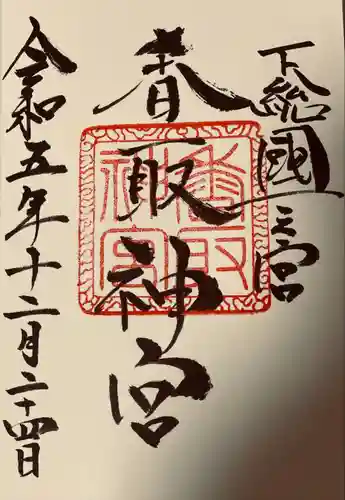 下総國一之宮
香取神宮
令和五年十二月二十四日
香取
神宮